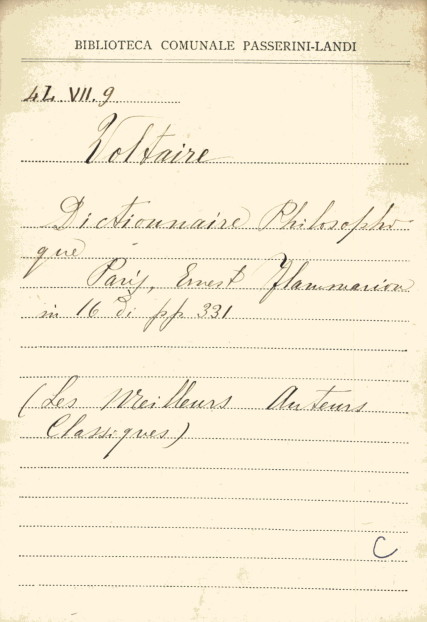 BIBLIOTECA COMUNALE PASSERINI-LANDI
4Z. VII. 9
Voltaire
Dictionnaire Philosophi
que
Paris, Ernest Flammarion
in 16 di pp 331
(Les Meilleurs Auteurs
Classiques)
C